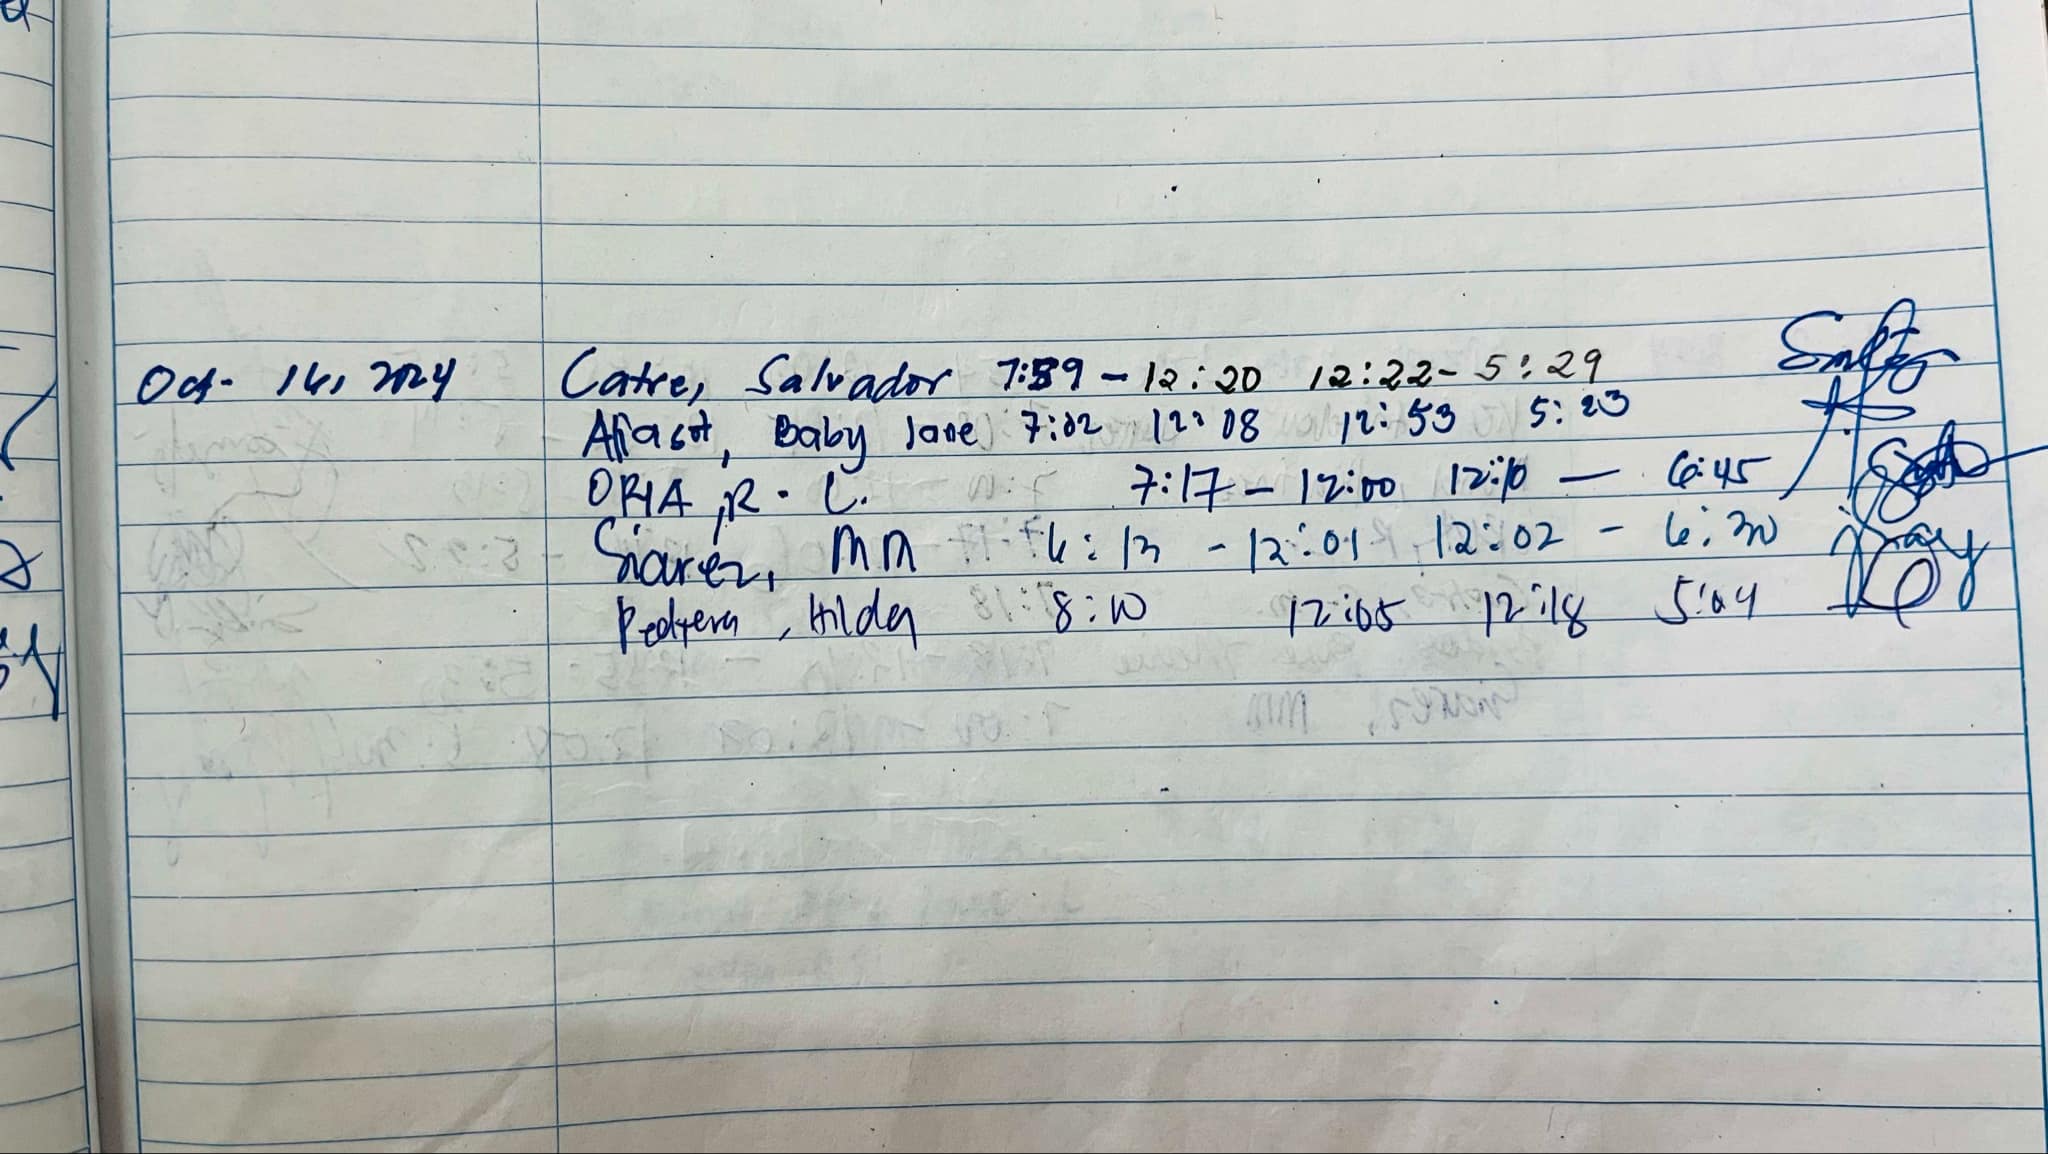 Oct. 16, 2024 Catre, Salvador 7:59 - 12:20 12:22 - 5:29
Baby Jane 7:02 12:08 12:53 5:23
ORIA, R. C. 7:17 - 12:00 12:10 - 6:45
Siarez, MM 6:13 - 12:01 12:02 - 6:30
Hilda 8:10 12:05 12:18 5:04